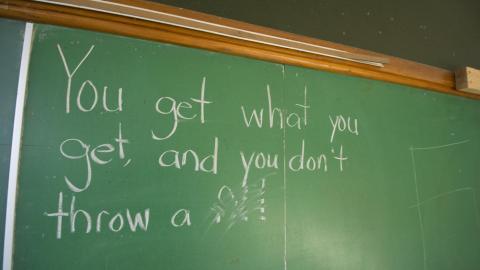 You get what you
get, and you don't
throw a